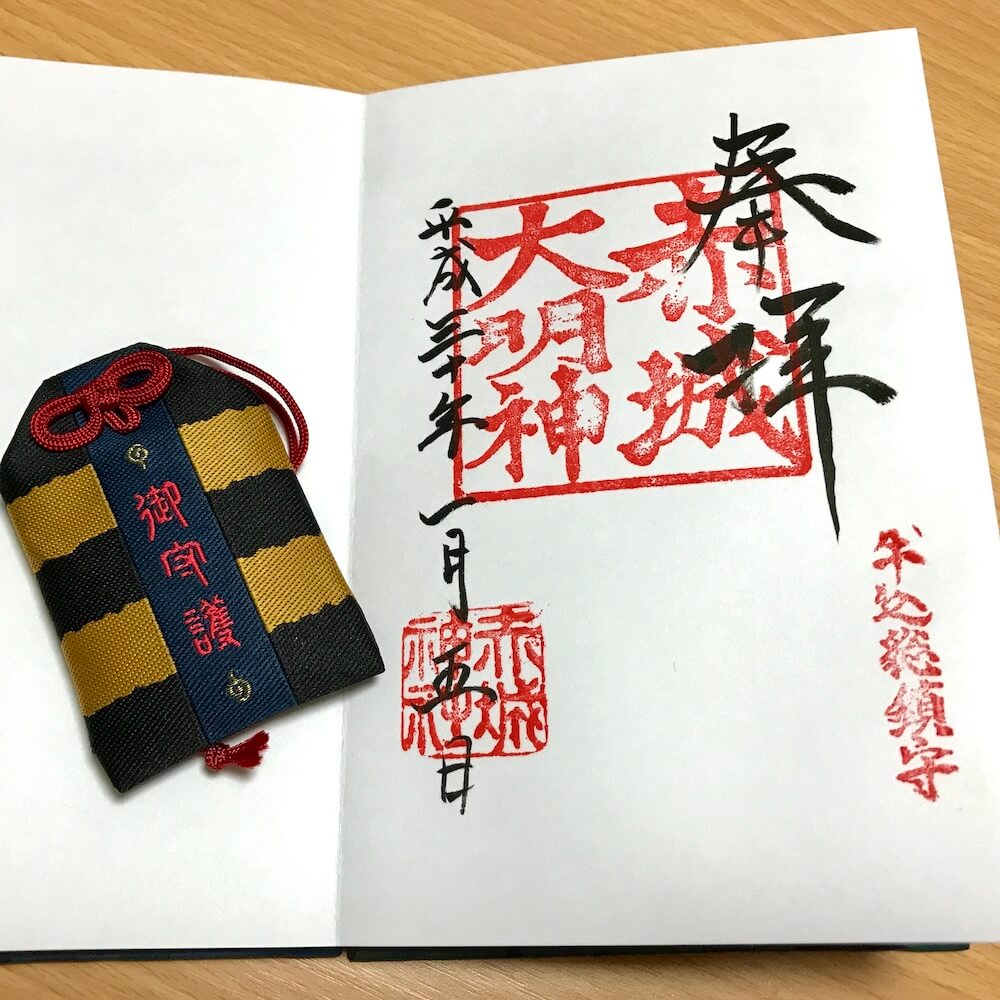 奉拝
赤城
大明神
平成三十年一月五日
赤城
神社
牛込総鎮守
御守護